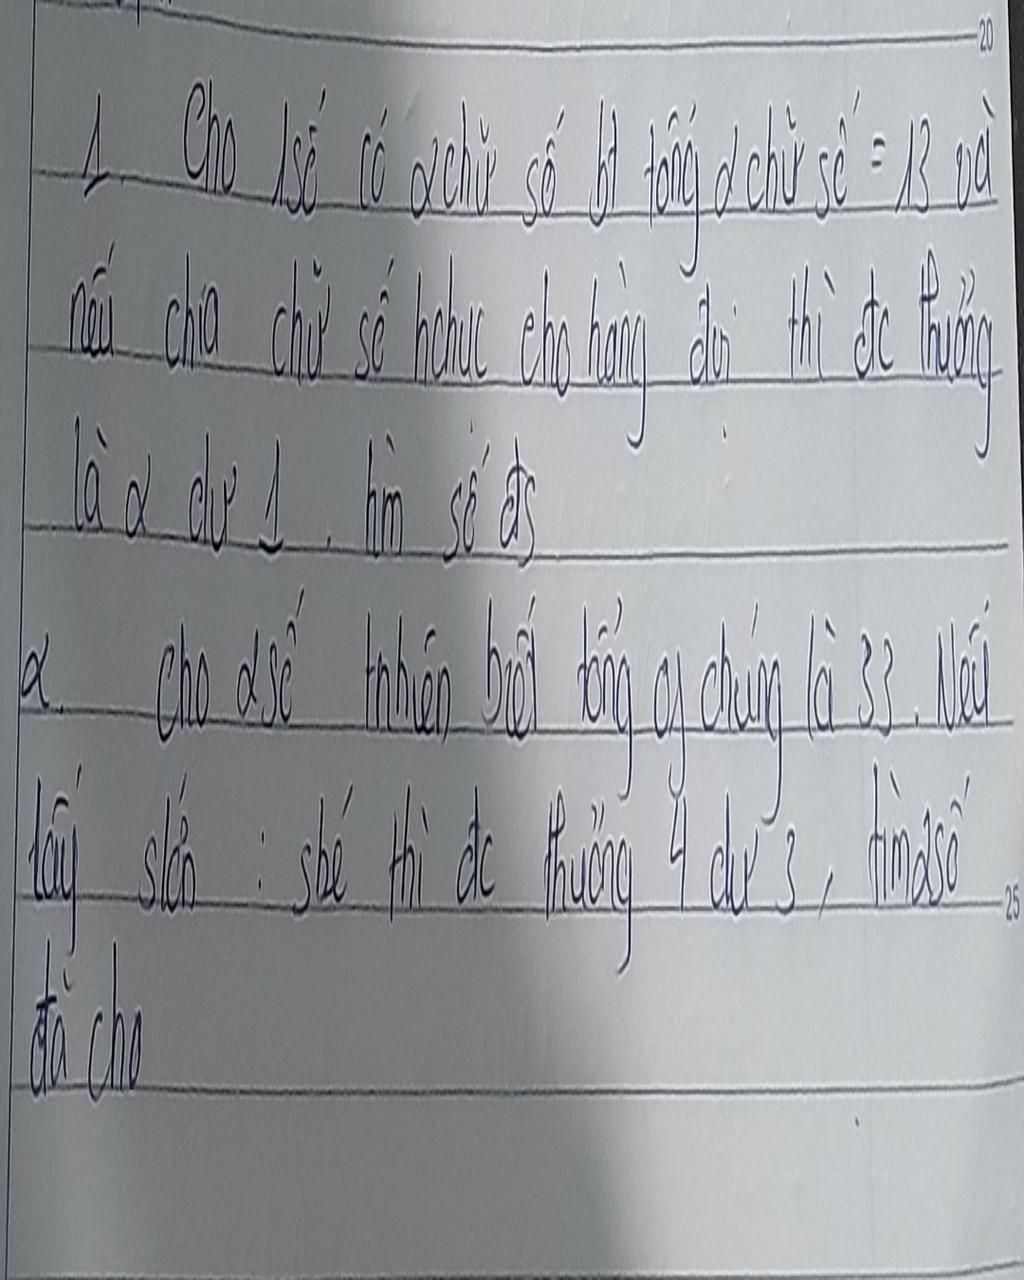 20
1. Cho 1số có 2chữ số bt tổng 2 chữ số = 13 và
nếu chia chữ số hchục cho hàng đvị thì đc thương
là 2 dư 1. tìm số đs
2. Cho 2 số tnhiên biết tổng củ chúng là 33. Nếu
lấy slớn : sbé thì đc thương 4 dư 3, tìm2số
25
đã cho